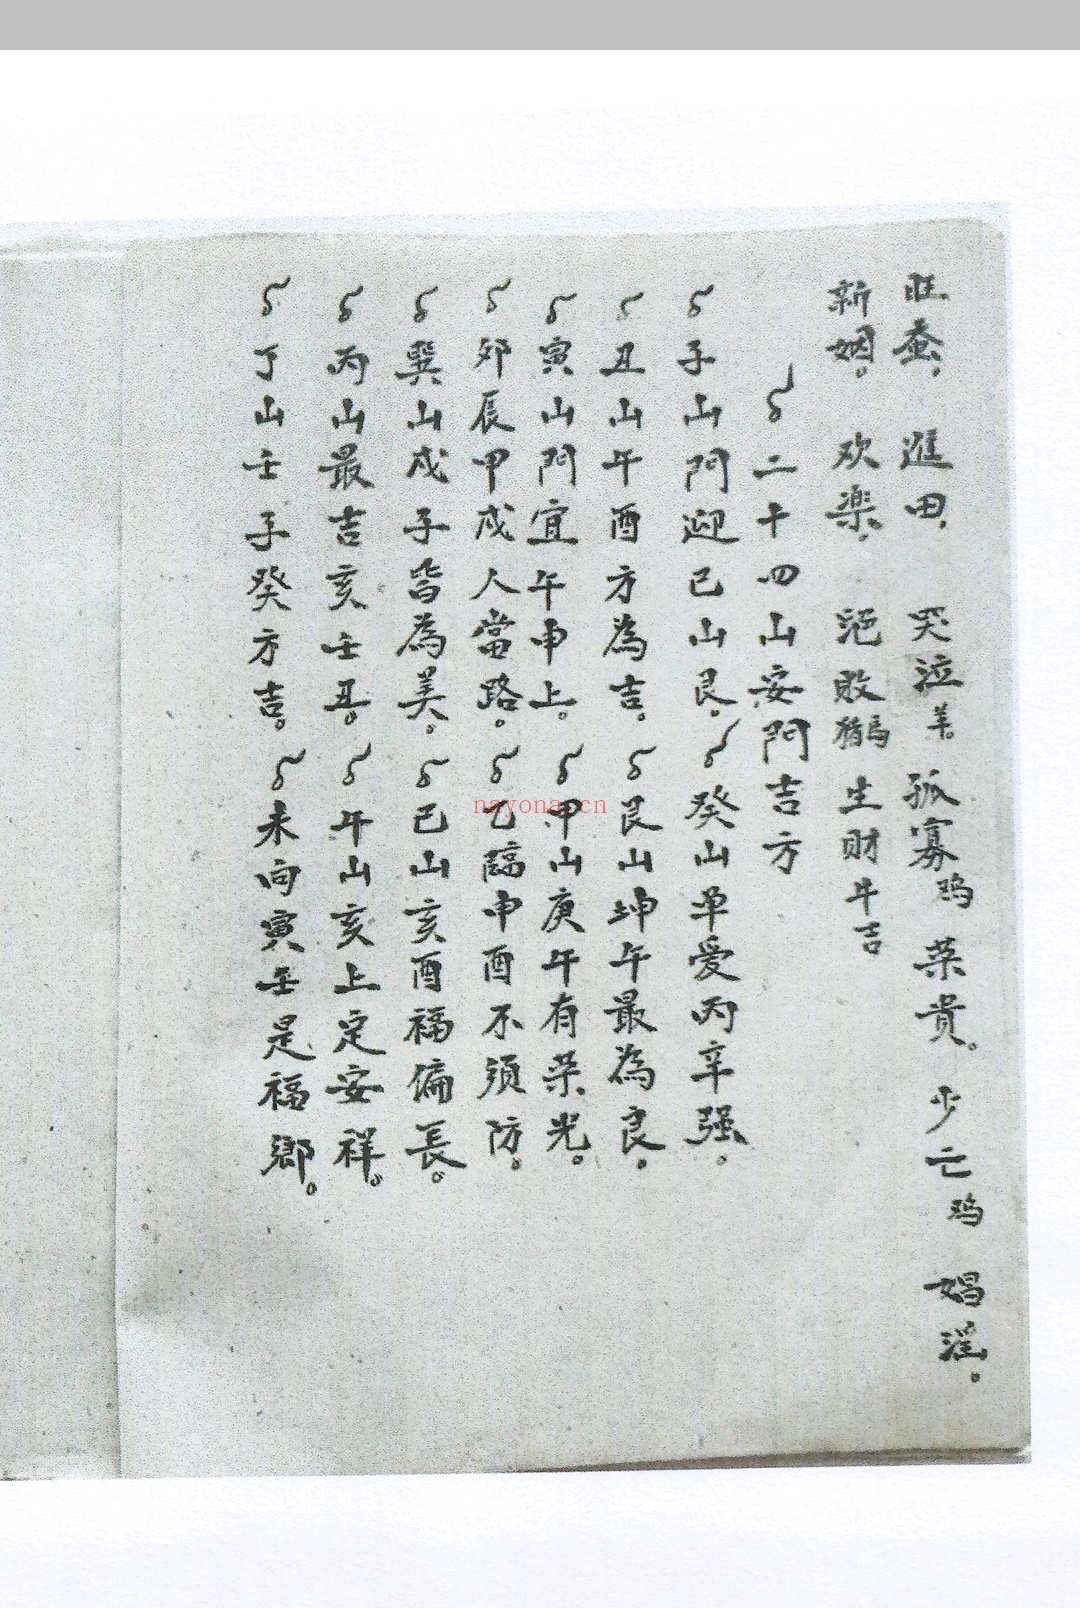 旺蚕。進田。哭泣羊。孤寡鸡荣貴。少亡鸡娼淫。
新姻。欢楽。絶敗生财牛吉
二十四山安門吉方
子山門迎巳山艮。癸山单爱丙辛强。
丑山午酉方為吉。艮山坤午最為良。
寅山門宜午申上。甲山庚午有荣光。
卯辰甲戌人當路。乙臨申酉不须防。
巽山戌子皆為美。巳山亥酉福偏長。
丙山最吉亥壬丑。午山亥上定安祥。
丁山壬子癸方吉。未向寅壬是福鄉。
nayona.cn